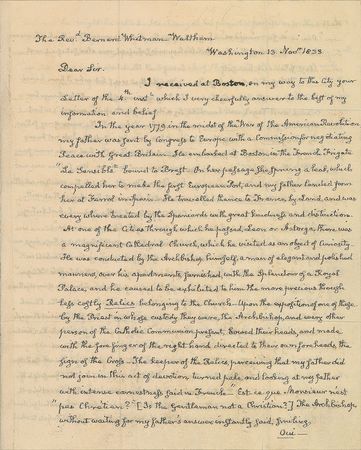 The Revd Bernard Whitman Waltham
Washington 13 Novr 1833
Dear Sir.
I received at Boston, on my way to this City your
Letter of the 4th inst which I very cheerfully answer to the best of my
information and belief
In the year 1779 in the midst of the War of the American Revolution
my father was sent by Congress to Europe with a Commission for negotiating
Peace with Great Britain. He embarked at Boston in the French Frigate
"La Sensible" bound to Brest. On her passage She sprung a leak, which
compelled her to make the first European Port, and my father landed from
her at Ferrol in Spain. He travelled thence to France, by Land, and was
every where treated by the Spaniards with great kindness and distinction.
At one of the Cities through which he passed, Leon or Astorga, there was
a magnificent Cathedral Church, which he visited as an object of Curiosity.
He was conducted by the Archbishop himself, a man of elegant and polished
manners, over his apartments furnished with the Splendour of a Royal
Palace, and he caused to be exhibited to him the more precious though
less costly Relics belonging to the Church. Upon the exposition of one of these
by the Priest in whose custody they were, the Archbishop, and every other
person of the Catholic Communion present, bowed their heads, and made
with the fore finger of the right hand directed to their own foreheads, the
sign of the Cross. The keeper of the Relics, perceiving that my father did
not join in this act of devotion turned pale, and looking at my father
with intense earnestness said in French "Est ce que Monsieur n'est
"pas Chrétien?" [Is the Gentleman not a Christian?] The Archbishop
without waiting for my father's answer instantly said, smiling,
Oui—